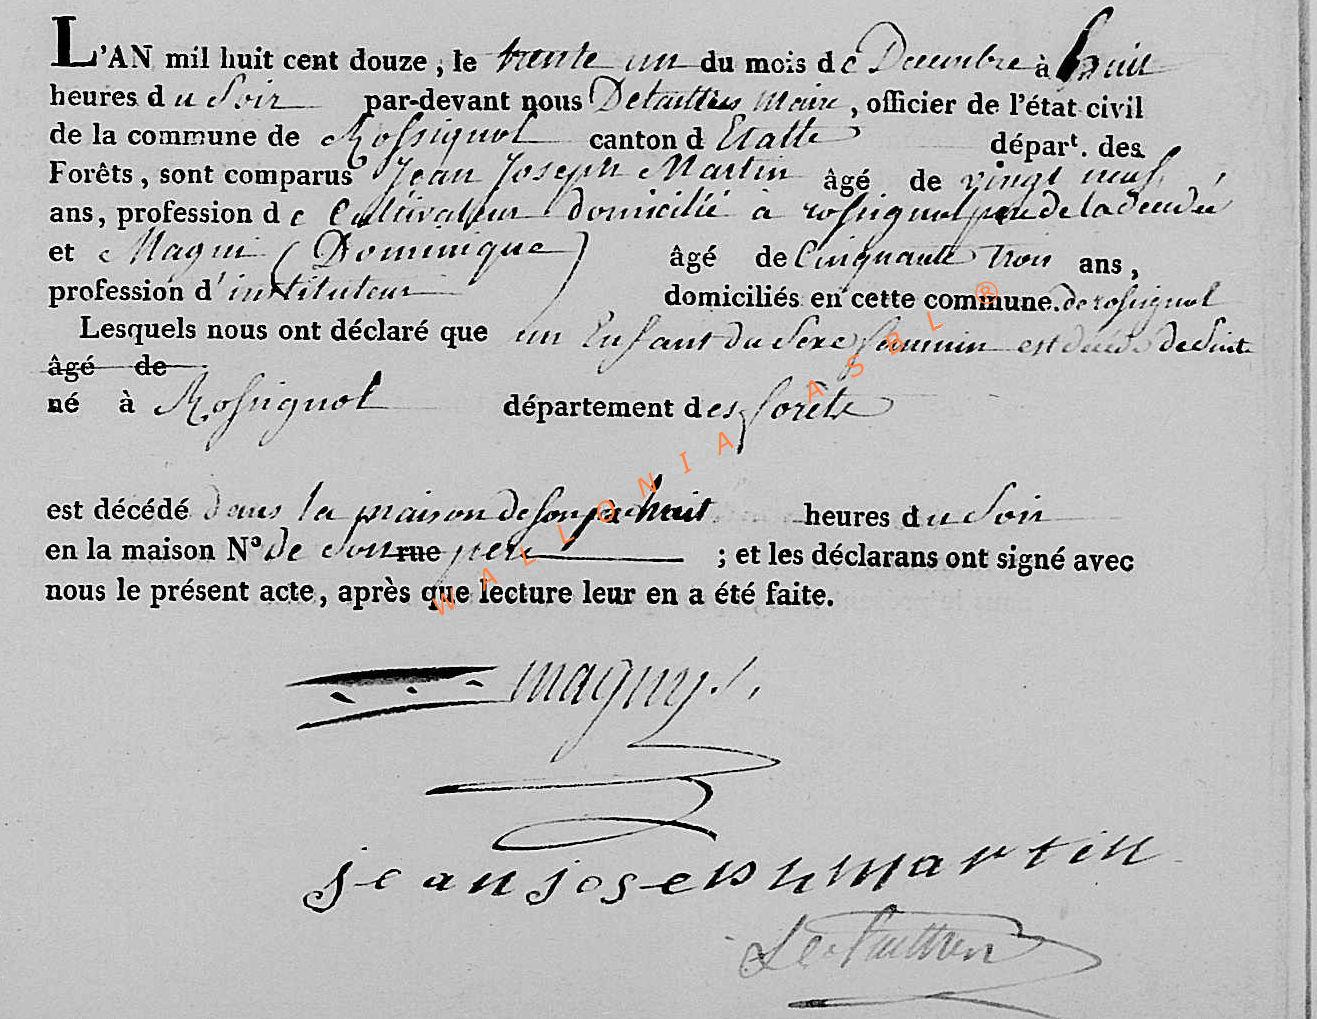 L'AN mil huit cent douze, le trente un du mois de Decembre à huit
heures du Soir par-devant nous Detaittres Maire, officier de l'état civil
de la commune de Rossignol canton d'Etalle départ. des
Forêts, sont comparus Jean Joseph Martin âgé de vingt neuf
ans, profession de Cultivateur domicilié à rossignol pere de la
et Magni (Dominique) âgé de Cinquante trois ans,
profession d'instituteur domiciliés en cette commune. de rossignol
Lesquels nous ont déclaré que un Enfant du Sexe feminin est
âgé de
né à Rossignol département des forêts
est décédé dans la maison de son huit heures du Soir
en la maison Nº de son rue pere ; et les déclarans ont signé avec
nous le présent acte, après que lecture leur en a été faite.
magny
jean joseph martin
WALLONIA ASBL ®